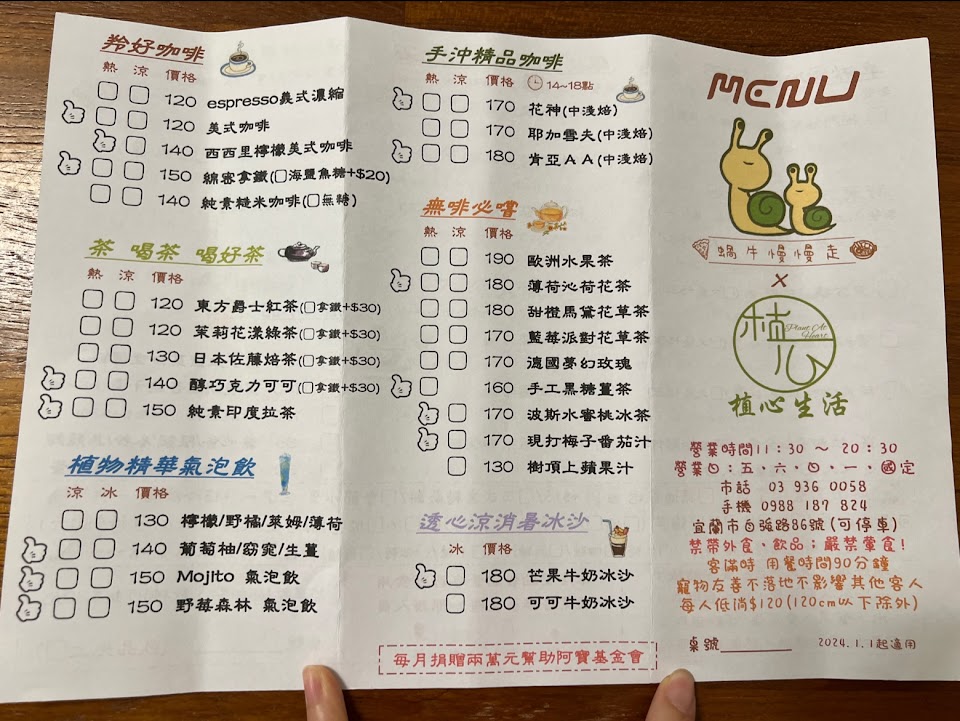 羚好咖啡
熱 涼 價格
120 espresso義式濃縮
120 美式咖啡
140 西西里檸檬美式咖啡
150 綿密拿鐵(□海鹽焦糖+$20)
140 純素糙米咖啡(□無糖)
茶 喝茶 喝好茶
熱 涼 價格
120 東方爵士紅茶(□拿鐵+$30)
120 茉莉花漾綠茶(□拿鐵+$30)
130 日本佐藤焙茶(□拿鐵+$30)
140 醇巧克力可可(□拿鐵+$30)
150 純素印度拉茶
植物精華氣泡飲
涼 冰 價格
130 檸檬/野橘/萊姆/薄荷
140 葡萄柚/窈窕/生薑
150 Mojito 氣泡飲
150 野莓森林 氣泡飲
手沖精品咖啡
熱 涼 價格 14~18點
170 花神(中淺焙)
170 耶加雪夫(中淺焙)
180 肯亞AA(中淺焙)
無啡必嚐
熱 涼 價格
190 歐洲水果茶
180 薄荷沁荷花茶
180 甜橙馬黛花草茶
170 藍莓派對花草茶
170 德國夢幻玫瑰
160 手工黑糖薑茶
170 波斯水蜜桃冰茶
170 現打梅子番茄汁
130 樹頂上蘋果汁
透心涼消暑冰沙
冰 價格
180 芒果牛奶冰沙
180 可可牛奶冰沙
每月捐贈兩萬元幫助阿寶基金會
MENU
蝸牛慢慢走
×
植心
Plant At Heart
植心生活
營業時間11:30 ~ 20:30
營業日:五、六、日、一、國定
市話 03 936 0058
手機 0988 187 824
宜蘭市自強路86號(可停車)
禁帶外食、飲品;嚴禁葷食!
客滿時 用餐時間90分鐘
寵物友善不落地不影響其他客人
每人低消$120(120cm以下除外)
桌號
2024.1.1起適用